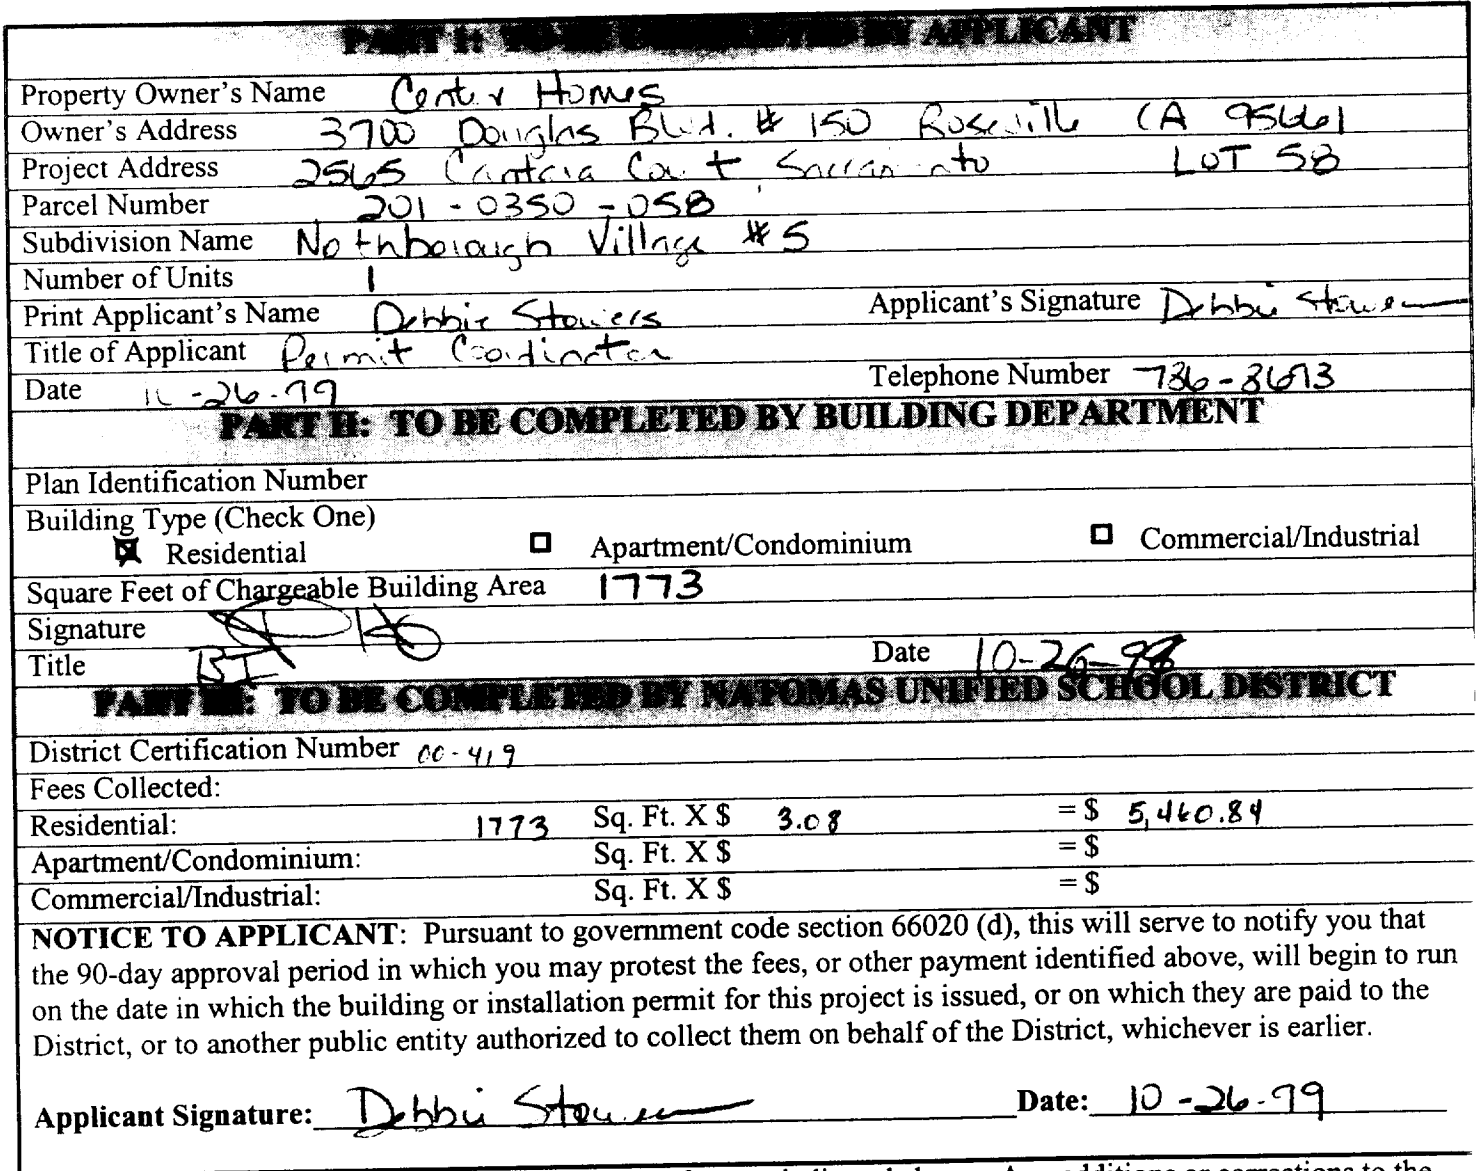 PART I: TO BE COMPLETED BY APPLICANT
Property Owner's Name Center Homes
Owner's Address 3700 Douglas Blvd. # 150 Roseville CA 95661
Project Address 2565 Court Sacramento LOT 58
Parcel Number 201-0350-058
Subdivision Name Northborough Village #5
Number of Units 1
Print Applicant's Name Debbie Stowers Applicant's Signature Debbie Stowers
Title of Applicant Permit Coordinator
Date 10-26-99 Telephone Number
PART II: TO BE COMPLETED BY BUILDING DEPARTMENT
Plan Identification Number
Building Type (Check One)
Residential Apartment/Condominium Commercial/Industrial
Square Feet of Chargeable Building Area 1773
Signature
Title BI Date 10-26-99
PART III: TO BE COMPLETED BY NATOMAS UNIFIED SCHOOL DISTRICT
District Certification Number 00-419
Fees Collected:
Residential: 1773 Sq. Ft. X $ 3.08 = $ 5,460.84
Apartment/Condominium: Sq. Ft. X $ = $
Commercial/Industrial: Sq. Ft. X $ = $
NOTICE TO APPLICANT: Pursuant to government code section 66020 (d), this will serve to notify you that
the 90-day approval period in which you may protest the fees, or other payment identified above, will begin to run
on the date in which the building or installation permit for this project is issued, or on which they are paid to the
District, or to another public entity authorized to collect them on behalf of the District, whichever is earlier.
Applicant Signature: Debbie Stowers Date: 10-26-99